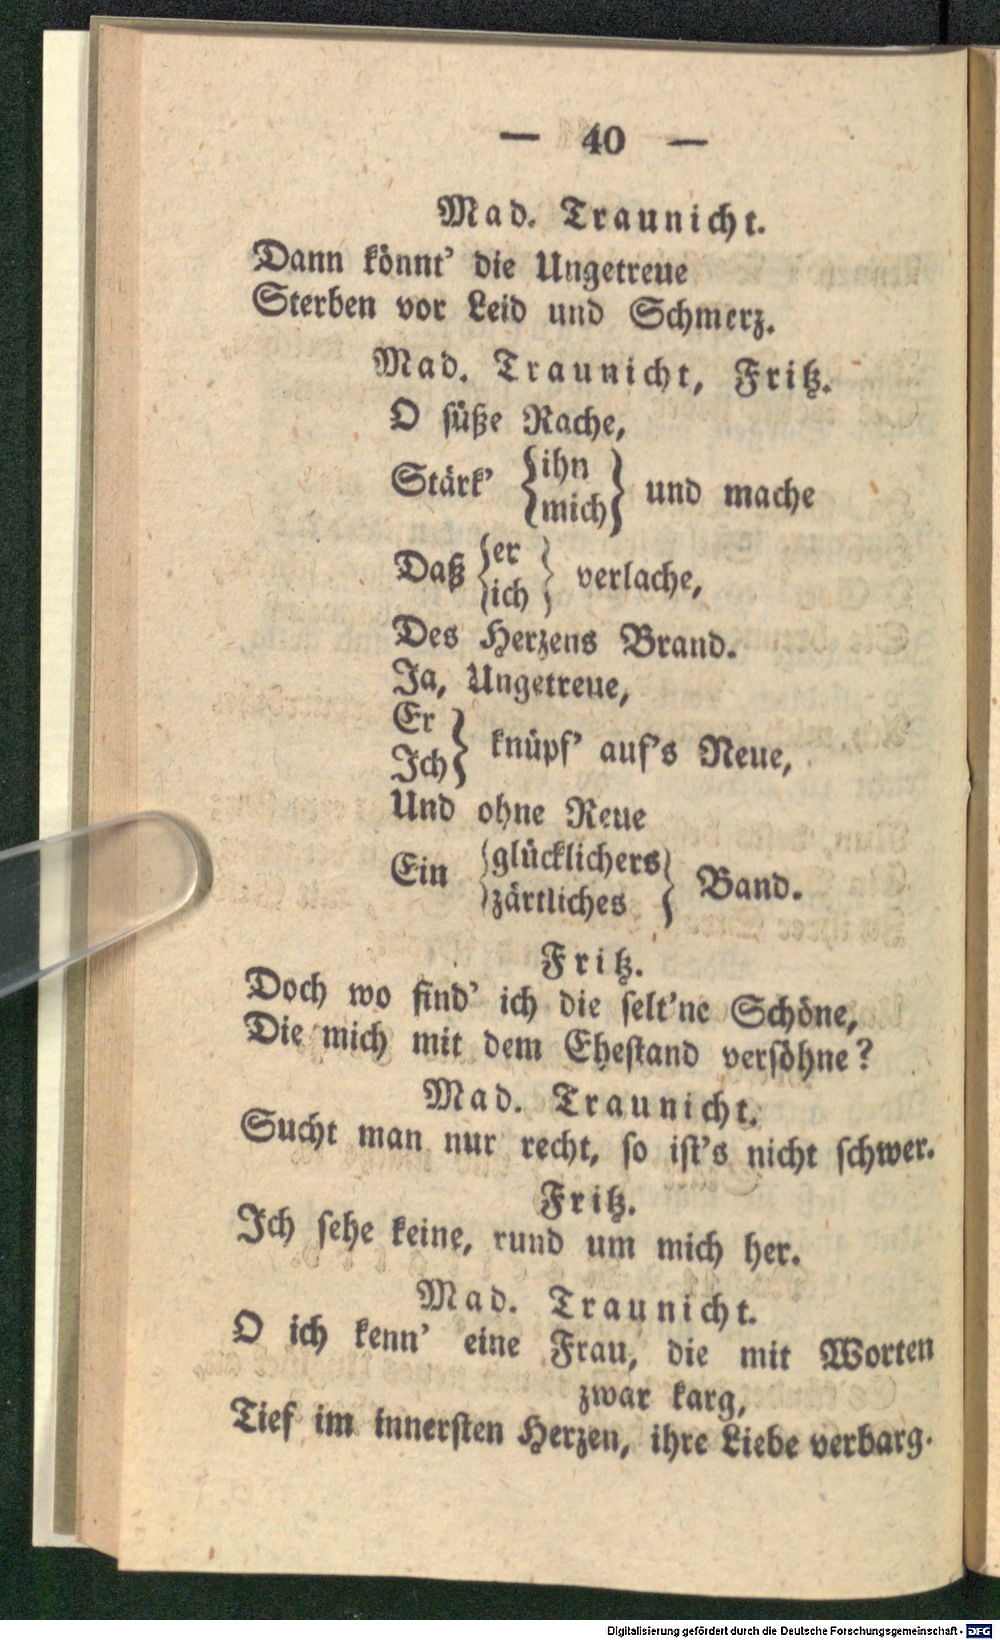 — 40 —
Mad. Traunicht.
Dann könnt' die Ungetreue
Sterben vor Leid und Schmerz.
Mad. Traunicht, Fritz.
O süße Rache,
Stärk' {ihn
{mich} und mache
Daß {er
{ich} verlache,
Des Herzens Brand.
Ja, Ungetreue,
Er
Ich} knüpf' auf's Neue,
Und ohne Reue
Ein {glücklichers
{zärtliches} Band.
Fritz.
Doch wo find' ich die selt'ne Schöne,
Die mich mit dem Ehestand versöhne?
Mad. Traunicht.
Sucht man nur recht, so ist's nicht schwer.
Fritz.
Ich sehe keine, rund um mich her.
Mad. Traunicht.
O ich kenn' eine Frau, die mit Worten
zwar karg,
Tief im innersten Herzen, ihre Liebe verbarg.
Digitalisierung gefördert durch die Deutsche Forschungsgemeinschaft - DFG